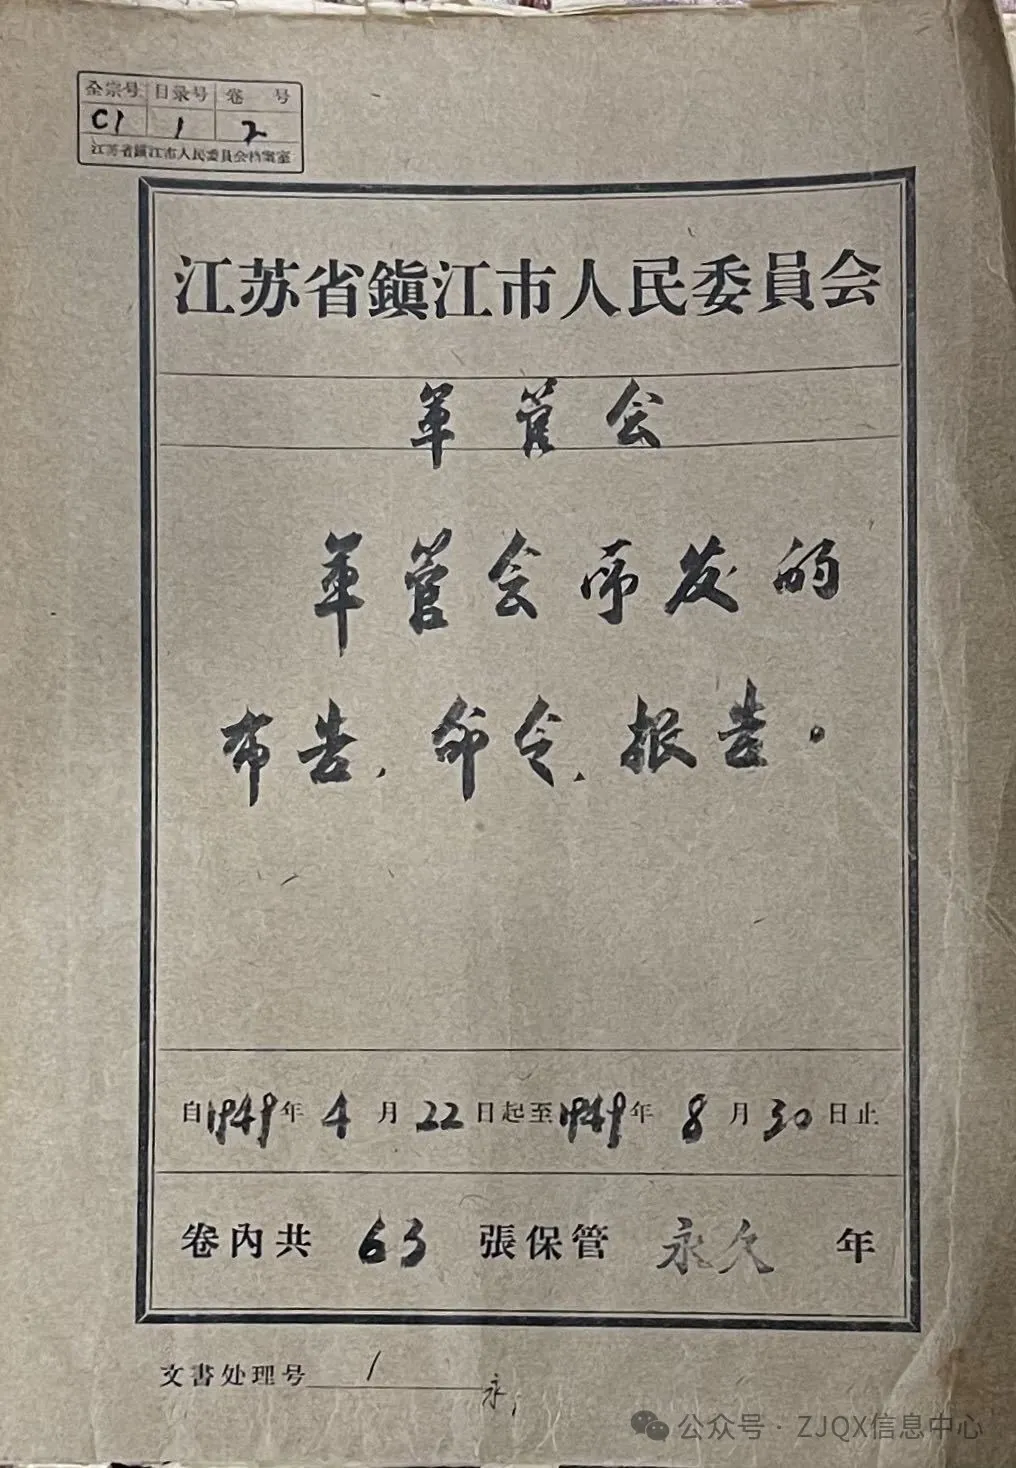 全宗号 目录号 卷 号
C1 1 2
江苏省鎮江市人民委員会档案室
江苏省鎮江市人民委員会
军管会
军管会布发的
布告、命令、报告。
自1949年4月22日起至1949年8月30日止
卷內共63張保管永久年
文書处理号 1
永
公众号·ZJQX信息中心